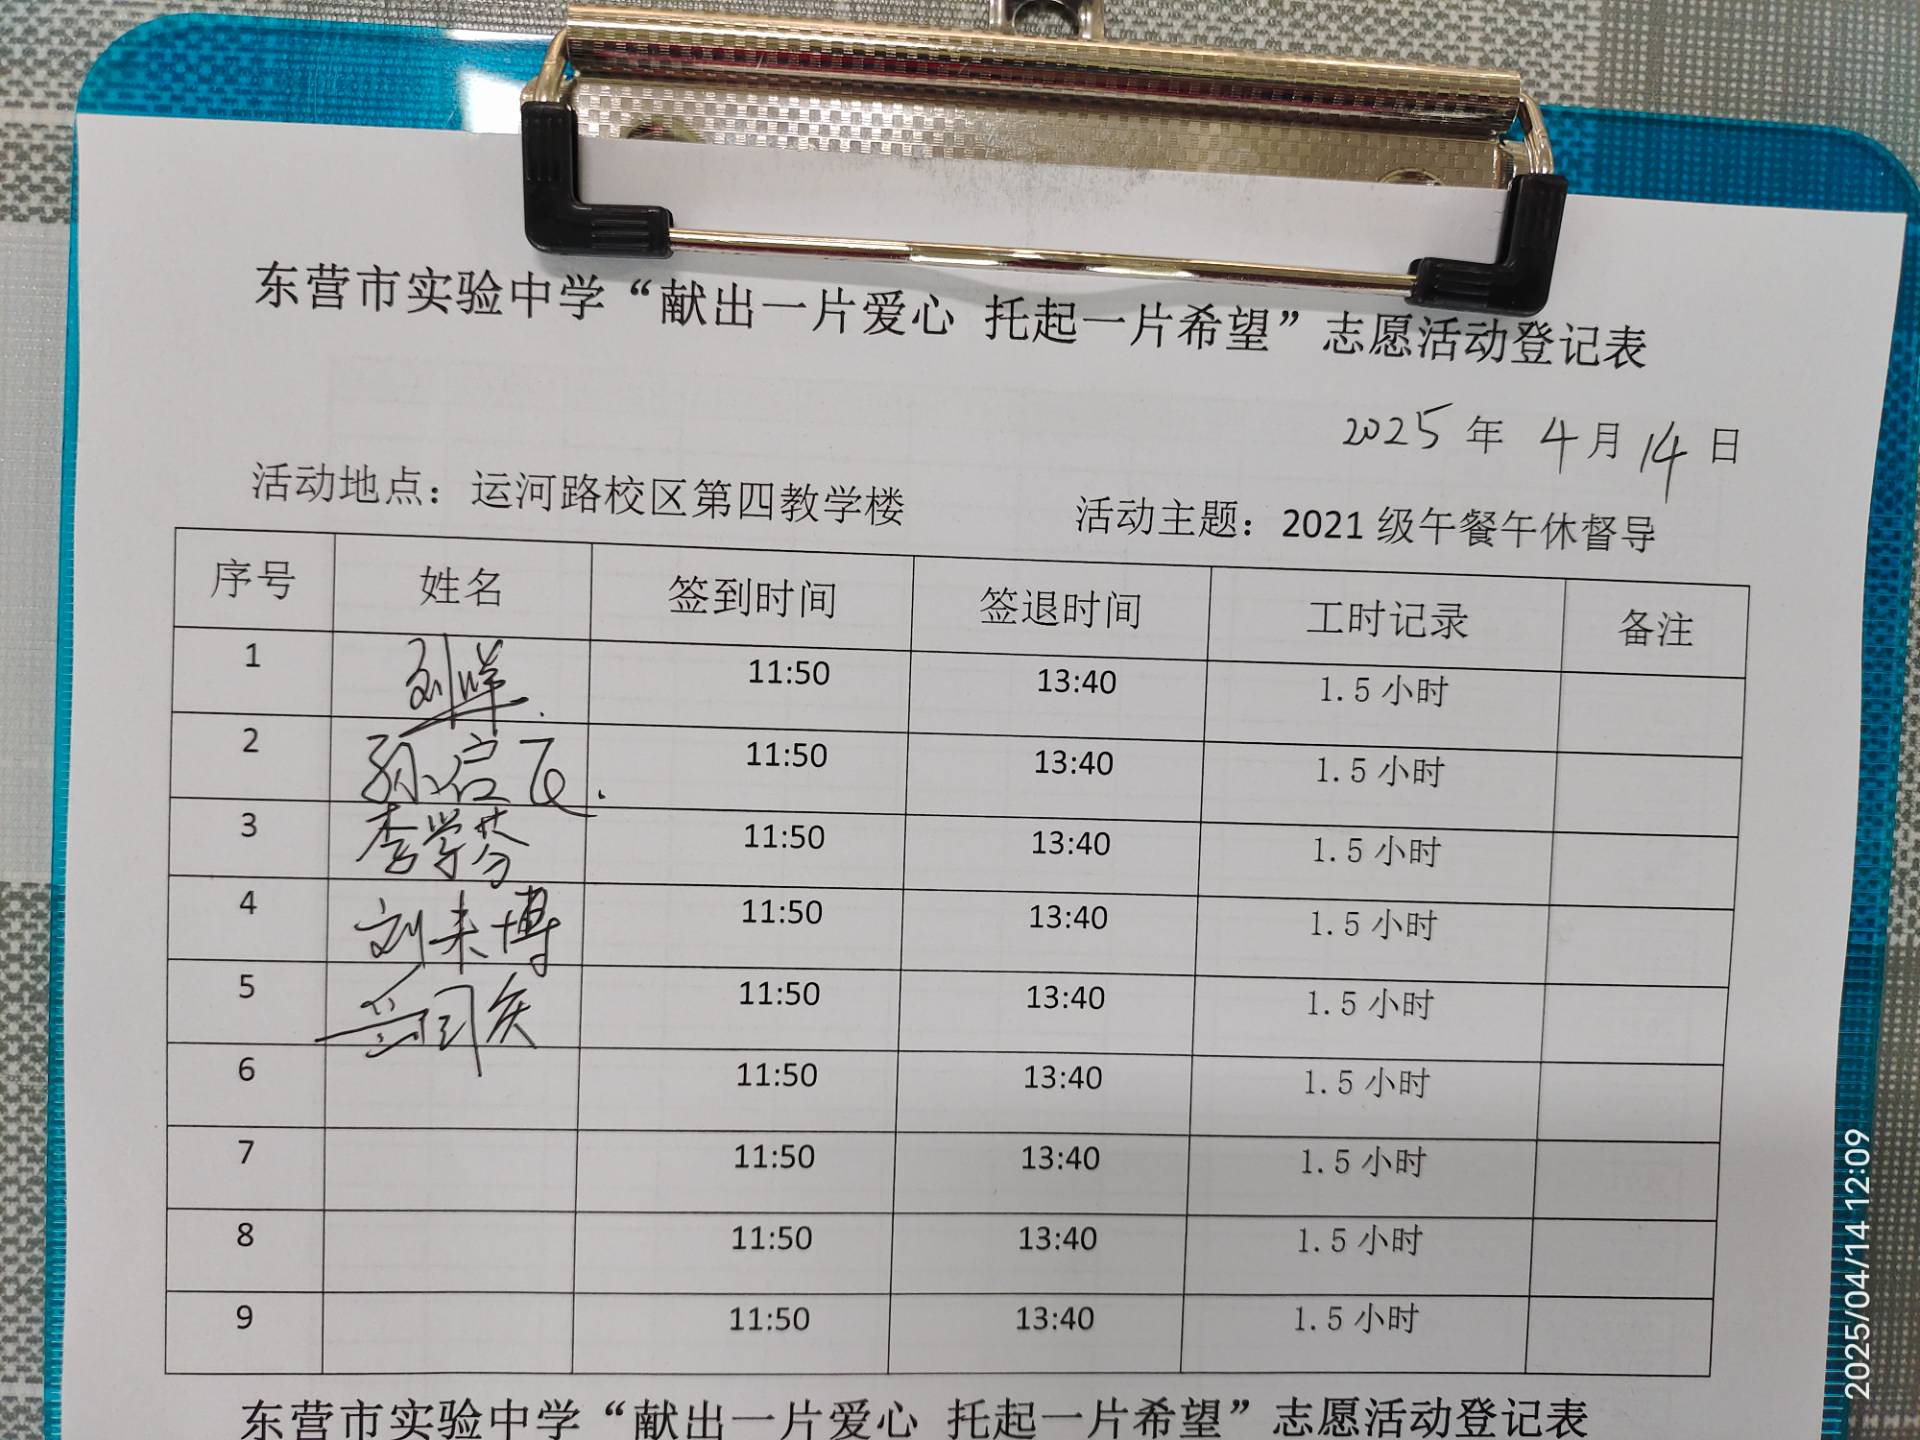 东营市实验中学“献出一片爱心 托起一片希望”志愿活动登记表
2025 年 4 月 14 日
活动地点：运河路校区第四教学楼 活动主题：2021 级午餐午休督导
序号 姓名 签到时间 签退时间 工时记录 备注
1 刘洋 11:50 13:40 1.5 小时
2 孙启飞 11:50 13:40 1.5 小时
3 李学芬 11:50 13:40 1.5 小时
4 刘来博 11:50 13:40 1.5 小时
5 11:50 13:40 1.5 小时
6 11:50 13:40 1.5 小时
7 11:50 13:40 1.5 小时
8 11:50 13:40 1.5 小时
9 11:50 13:40 1.5 小时
东营市实验中学“献出一片爱心 托起一片希望”志愿活动登记表
2025/04/14 12:09